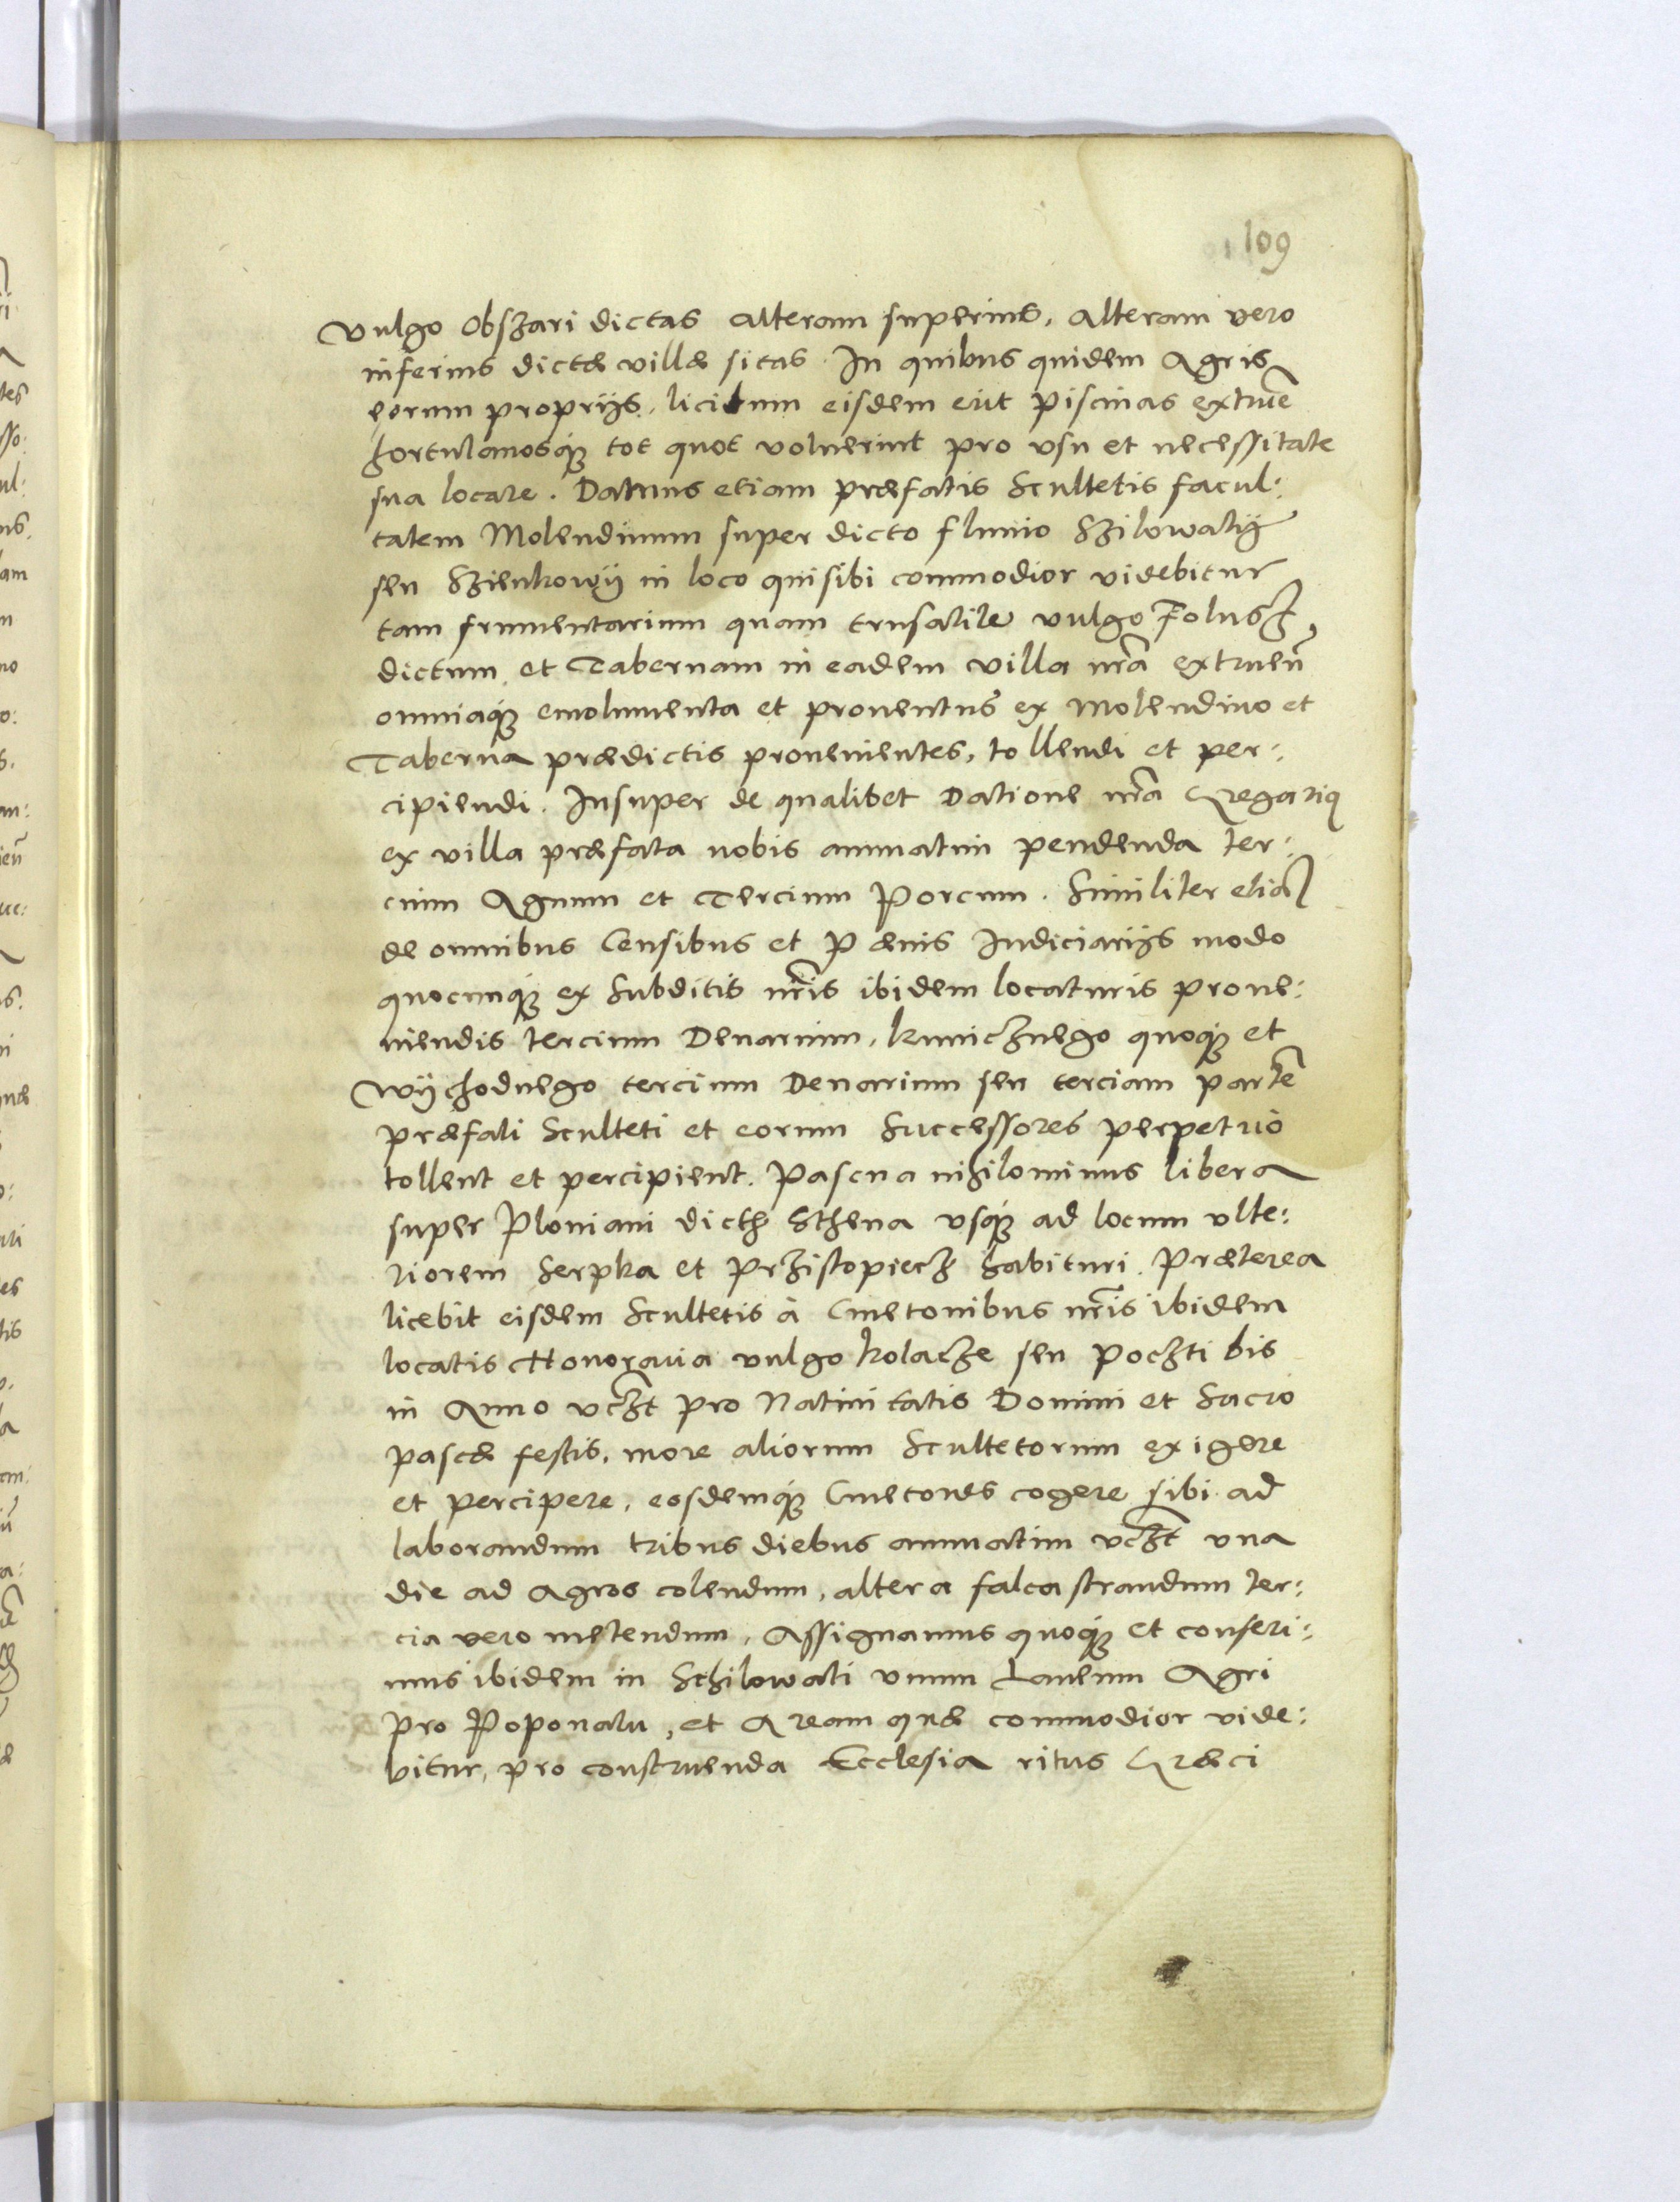 109
vulgo Obszari dictas alteram superius, alteram vero
inferius dictæ villæ sitas. In quibus quidem Agris
eorum proprijs, licitum eisdem erit piscinas extruẽ
hortulanosq; tot quot voluerint pro vsu et necessitate
sua locare. Damus etiam præfatis Scultetis facul:
tatem Molendinum super dicto fluuio Szilowatÿ
seu Szienkowÿ in loco qui sibi commodior videbitur
tam frumentarium quam trusatile vulgo Folusz
dictum, et Tabernam in eadem villa nr̃a extruen̄
omniaq; emolumenta et prouentus ex Molendino et
Taberna prædictis prouenientes, tollendi et per:
cipiendi. Insuper de qualibet Datione nr̃a Gregariq
ex villa præfata nobis annuatim pendenda ter:
cium Agnum et Tercium Porcum. Similiter etiã
de omnibus Censibus et Pænis Iudiciarijs modo
quocunq; ex Subditis nr̃is ibidem locaturis proue:
niendis tercium Denarium, kunicznego quoq; et
Wÿchodnego tercium Denarium seu terciam partẽ
præfati Sculteti et eorum Successores perpetuo
tollent et percipient. Pascua nihilominus libera
super Ploniani dicth Sthena vsq; ad locum vlte:
riorem Serpka et Przistopiecz habituri. Præterea
licebit eisdem Scultetis à Cmetonibus nr̃is ibidem
locatis Honorauia vulgo kolacze seu Poczti bis
in Anno vcz̃t pro Natiuitatis Domini et Sacro
pascæ festis, more aliorum Scultetorum exigere
et percipere, eosdemq; Cmetones cogere sibi ad
laborandum tribus diebus annuatim vcz̃t vna
die ad Agros colendum, altera falcastrandum ter:
cia vero metendum, Assignamus quoq; et conferi:
mus ibidem in Schilowati vnum Laneum Agri
pro Poponatu, et Aream quæ commodior vide:
bitur, pro construenda Ecclesia ritus Græci